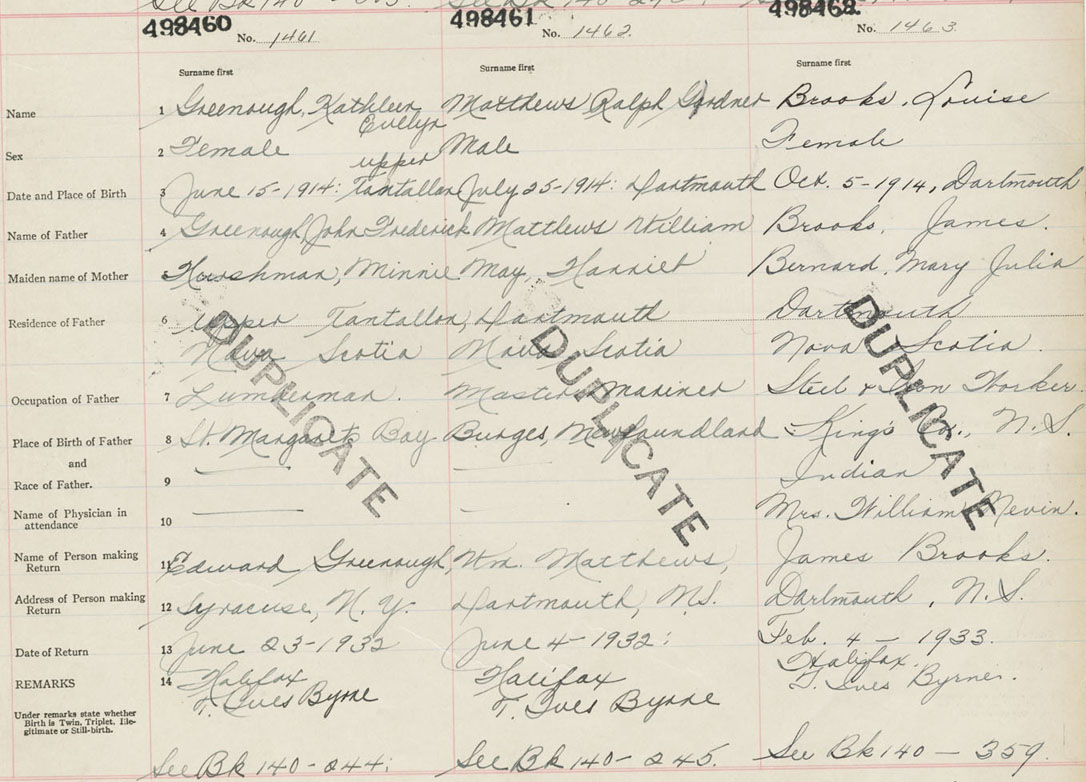 498460
498461
498462
No. 1461
No. 1462
No. 1463
Surname first
Surname first
Surname first
Name 1 Greenough, Kathleen Evelyn
Matthews Ralph Gardner
Brooks, Louise
Sex 2 Female
Male
Female
Date and Place of Birth 3 June 15-1914: upper Tantallon
July 25-1914: Dartmouth
Oct. 5-1914, Dartmouth
Name of Father 4 Greenough, John Frederick
Matthews William
Brooks, James.
Maiden name of Mother 5 Hurshman, Minnie
May, Harriet
Bernard, Mary Julia
Residence of Father 6 Upper Tantallon,
Nova Scotia
Dartmouth
Nova Scotia
Dartmouth
Nova Scotia.
Occupation of Father 7 Lumberman.
Master Mariner
Steel & Iron Worker.
Place of Birth of Father 8 St. Margarets Bay
Burges, Newfoundland
King's Co., N.S.
and
Race of Father. 9
Indian
Name of Physician in
attendance 10
Mrs. William Nevin.
Name of Person making
Return 11 Edward Greenough,
Wm. Matthews,
James Brooks.
Address of Person making
Return 12 Syracuse, N.Y.
Dartmouth, N.S.
Dartmouth, N.S.
Date of Return 13 June 23-1932
June 4-1932:
Feb. 4-1933.
REMARKS 14 Halifax
T. Ives Byrne
Halifax
T. Ives Byrne
Halifax.
T. Ives Byrne.
Under remarks state whether
Birth is Twin, Triplet, Ille-
gitimate or Still-birth.
See Bk 140-244:
See Bk 140-245.
See Bk 140-359.
DUPLICATE
DUPLICATE
DUPLICATE